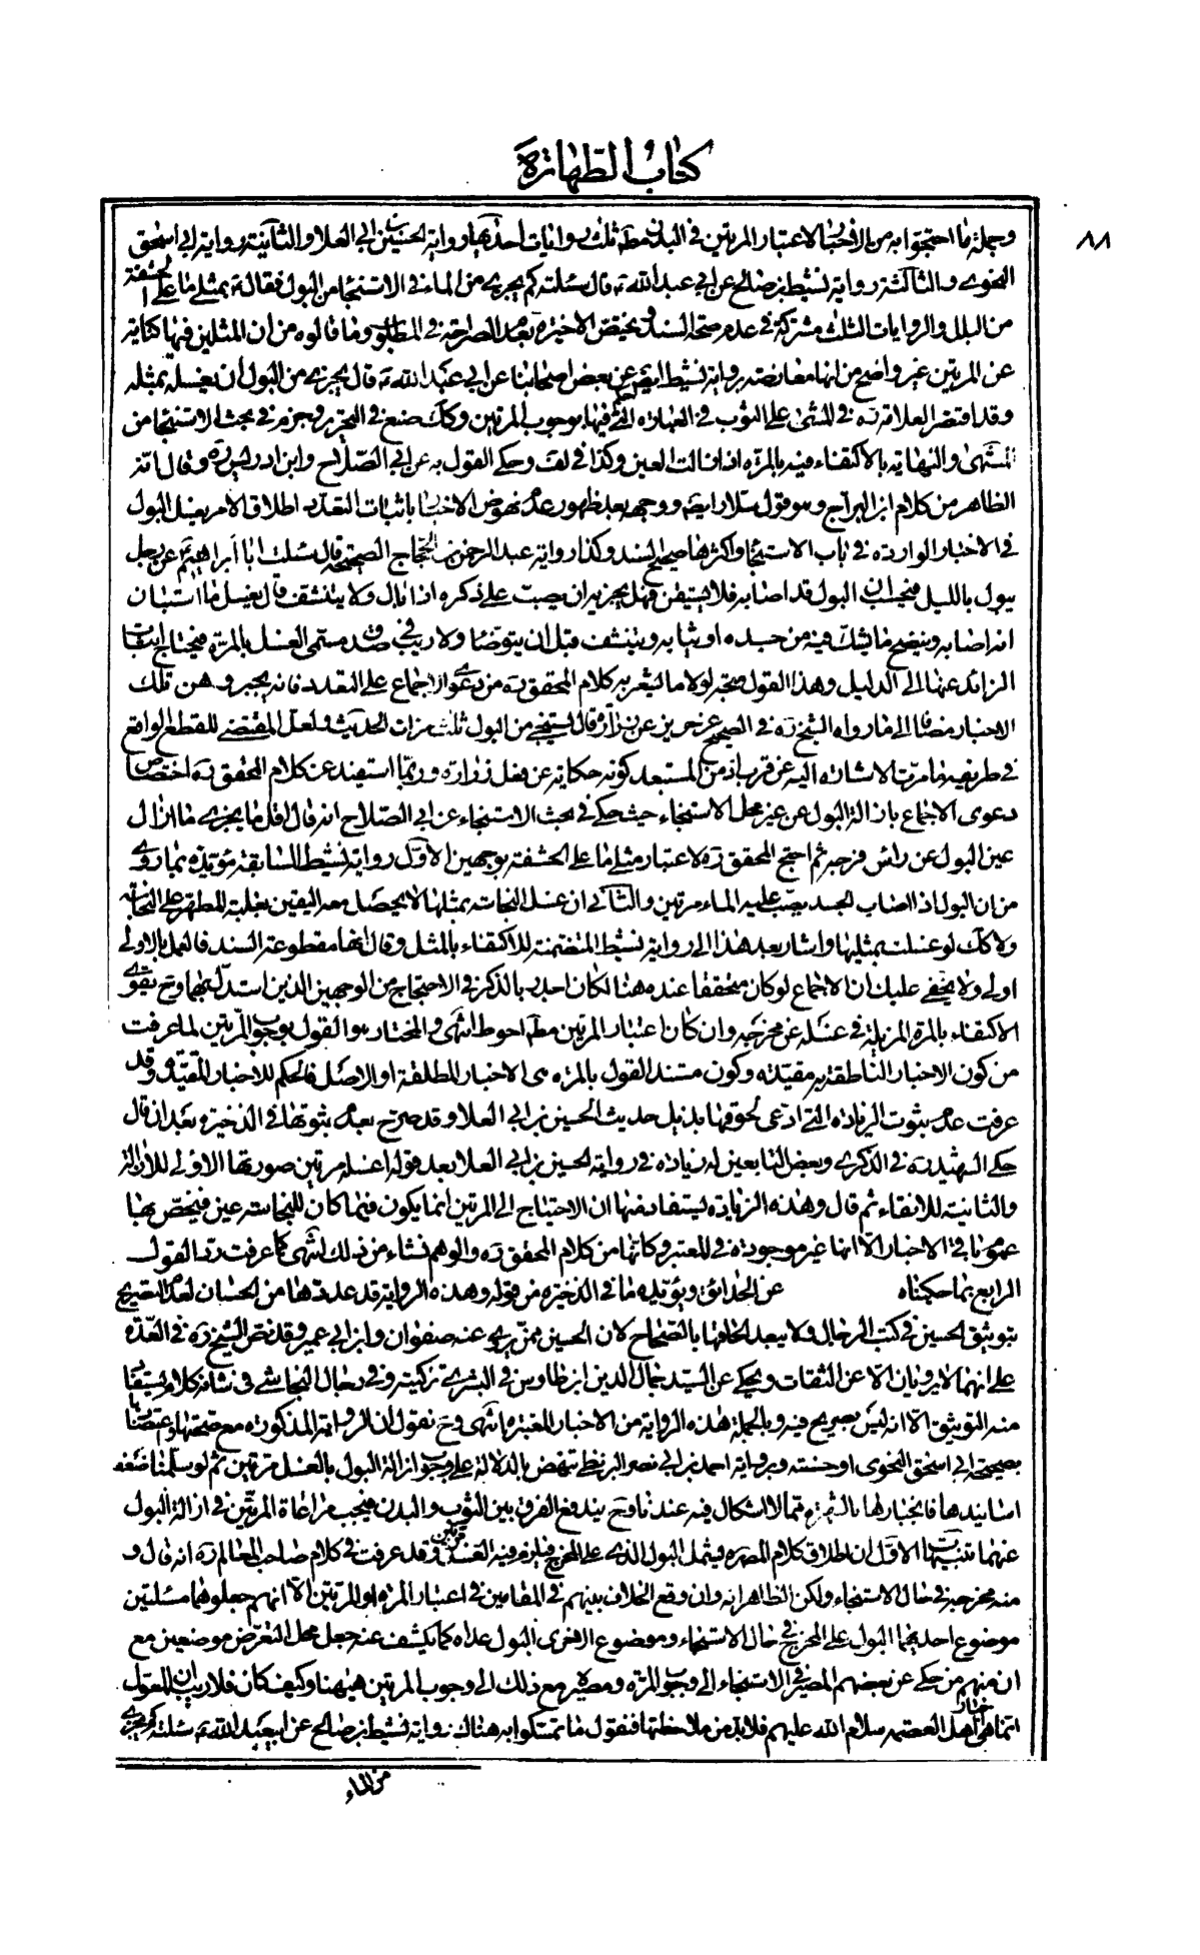 كتاب الطهارة
٨٨
وجملة ما احتجوا به من الأخبار لاعتبار المرتين في البدن مط ثلث روايات احدها رواية الحسين بن ابي العلا والثانية رواية ابي اسحق
النحوي والثالثة رواية نشيط بن صالح عن ابي عبد الله ع قال سئلته كم يجزي من الماء في الاستنجاء من البول فقال ع مثلي ما على الحشفة
من البلل والروايات الثلث مشتركة في عدم صحة السند وتختص الاخيرة بعدم الصراحة في المطلوب وما قالوه من ان المثلين فيها كناية
عن المرتين غير واضح مع انها معارضة برواية نشيط ايضا عن بعض اصحابنا عن ابي عبد الله ع قال يجزي من البول ان يغسله بمثله
وقد اقتصر العلامة ره في المنتهى على الثوب في العبارة التي حكم فيها بوجوب المرتين وكك صنع في التحرير وجزم في بحث الاستنجاء من
المنتهى والنهاية بالاكتفاء فيه بالمرة اذا زالت العين وكذا في لف وحكى القول به عن ابي الصلاح وابن ادريس ره وقال انه
الظاهر من كلام ابن البراج وهو قول سلار ايضا ووجهه بعد ظهور عدم نهوض الاخبار باثبات التعدد اطلاق الامر بغسل البول
في الاخبار الواردة في باب الاستنجاء واكثرها صحيح السند وكذا رواية عبد الرحمن بن الحجاج الصحيحة قال سئلت ابا ابراهيم ع عن رجل
يبول بالليل فيحسب ان البول قد اصابه فلا يستيقن فهل يجزيه ان يصب على ذكره اذا بال ولا يتنشف قال يغسل ما استبان
انه اصابه وينضح ما يشك فيه من جسده او ثيابه ويتنشف قبل ان يتوضأ ولا ريب في صدق مسمى الغسل بالمرة فيحتاج اثبات
الزائد عنها الى الدليل وهذا القول متجه لولا ما يشعر به كلام المحقق ره من دعوى الاجماع على التعدد فانه يجبر وهن تلك
الاخبار مضافا الى ما رواه الشيخ ره في الصحيح عن حريز عن زرارة قال يستنجي من البول ثلث مرات الحديث ولعل المقتضي للقطع الواقع
في طريقه ما مرت الاشارة اليه عن قرب اذ من المستبعد كونه حكاية عن فعل زرارة وربما استفيد عن كلام المحقق ره اختصاص
دعوى الاجماع بازالة البول عن غير محل الاستنجاء حيث حكى في بحث الاستنجاء عن ابي الصلاح انه قال اقل ما يجزي ما ازال
عين البول عن راس فرجه ثم احتج المحقق ره لاعتبار مثلي ما على الحشفة بوجهين الاول رواية نشيط السابقة مؤيدة بما روي
من ان البول اذا اصاب الجسد يصب عليه الماء مرتين والثاني ان غسل النجاسة بمثلها لا يحصل معه اليقين بغلبة المطهر على النجاسة
ولا كك لو غسلت بمثليها واشار بعد هذا الى رواية نشيط المتضمنة للاكتفاء بالمثل وقال انها مقطوعة السند فالعمل بالاولى
اولى ولا يخفى عليك ان الاجماع لو كان متحققا عنده هنا لكان احدى بالذكر في الاحتجاج من الوجهين الذين استدل بهما وح يقوى
الاكتفاء بالمرة المزيلة في غسله عن مخرجه وان كان اعتبار المرتين مط احوط انتهى والمختار هو القول بوجوب المرتين لما عرفت
من كون الاخبار الناطقة به مقيدة وكون مستند القول بالمرة هي الاخبار المطلقة او الاصل فالحكم للاخبار المقيدة وقد
عرفت عدم ثبوت الزيادة التي ادعى لحوقها بذيل حديث الحسين بن ابي العلا وقد صرح بعدم ثبوتها في الذخيرة بعد ان قال
حكى الشهيد ره في الذكرى وبعض التابعين له زيادة في رواية الحسين بن ابي العلا بعد قوله اغسله مرتين صورتها الاولى للازالة
والثانية للانقاء ثم قال وهذه الزيادة يستفاد منها ان الاحتياج الى المرتين انما يكون فيما كان للنجاسة عين فيخص بها
عموم ما في الاخبار الا انها غير موجودة في المعتبر وكانها من كلام المحقق ره والوهم نشاء من ذلك انتهى كما عرفت رد القول
الرابع بما حكيناه عن الحدائق ويؤيده ما في الذخيرة من قوله وهذه الرواية قد عدها من الحسان لعدم التصريح
بتوثيق الحسين في كتب الرجال ولا يبعد الحاقها بالصحاح لان الحسين ممن يروي عنه صفوان وابن ابي عمير وقد نص الشيخ ره في العدة
على انهما لا يرويان الا عن الثقات ويحكى عن السيد جمال الدين ابن طاوس في البشرى تزكيته وفي رجال النجاشي في شانه كلام يستفاد
منه التوثيق الا انه ليس بصريح فيه وبالجملة هذه الرواية من الاخبار المعتبرة انتهى وح نقول ان الرواية المذكورة مع صحتها واعتضادها
بصحيحة ابي اسحق النحوي او حسنته وبرواية احمد بن ابي نصر البزنطي تنهض بالدلالة على وجوب ازالة البول بالغسل مرتين ثم لو سلمنا ضعف
اسانيدها فانجبارها بالشهرة مما لا اشكال فيه عندنا وح يندفع الفرق بين الثوب والبدن فيجب مراعاة المرتين في ازالة البول
عنهما تنبيهات الاول ان اطلاق كلام المص ره يشمل البول الذي على المخرج فيلزم فيه الغسل مرتين وقد عرفت في كلام صاحب المعالم ره انه قال و
منه مخرجه في حال الاستنجاء ولكن الظاهر انه وان وقع الخلاف بينهم في المقامين في اعتبار المرة او المرتين الا انهم جعلوهما مسئلتين
موضوع احديهما البول على المخرج في حال الاستنجاء وموضوع الاخرى البول عداه كما يكشف عنه جعل محل التعرض موضعين مع
ان منهم من حكى عن بعضهم المصير في الاستنجاء الى وجوب المرة ومصيره مع ذلك الى وجوب المرتين هيهنا وكيف كان فلا ريب ان المعول
انما هو اخبار اهل العصمة سلام الله عليهم فلا بد من ملاحظتها فنقول ما تمسكوا به هناك رواية نشيط بن صالح عن ابي عبد الله ع سئلته كم يجزي
من الماء